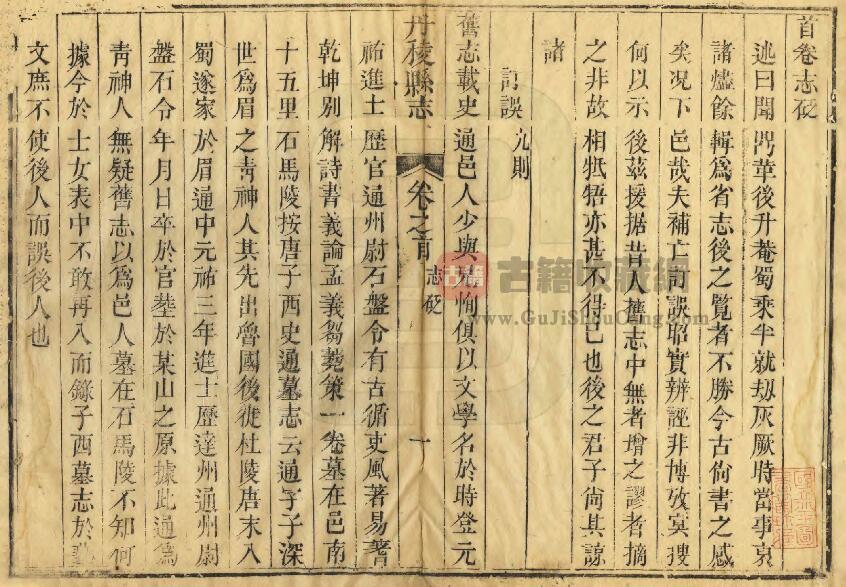 首卷志砭
述曰聞
兵華後升菴蜀乘半就刼灰厥時當事哀
諸燼餘輯爲省志後之覽者不勝今古尙書之感
矣况下邑哉夫補亡訂誤昭實辨誣非博攷㝠搜
何以示後茲援据昔人舊志中無者增之謬者摘
之非故相牴牾亦甚不得已也後之君子尙其諒
諸
訂誤九則
舊志載史通邑人少與兄恂俱以文學名於時登元
丹稜縣志
卷之首
志砭
一
祐進士歷官通州尉石盤令有古循吏風著易蓍
乾坤別解詩書義論孟義芻蕘策一卷墓在邑南
十五里石馬陵按唐子西史通墓志云通字子深
世爲眉之靑神人其先出魯國後徙杜陵唐末入
蜀遂家於眉通中元祐三年進士歷達州通州尉
盤石令年月日卒於官塟於某山之原據此通爲
靑神人無疑舊志以爲邑人墓在石馬陵不知何
據今於士女表中不敢再入而錄子西墓志於藝
文庶不使後人而誤後人也
古籍收藏網
www.GuJiShouCang.com